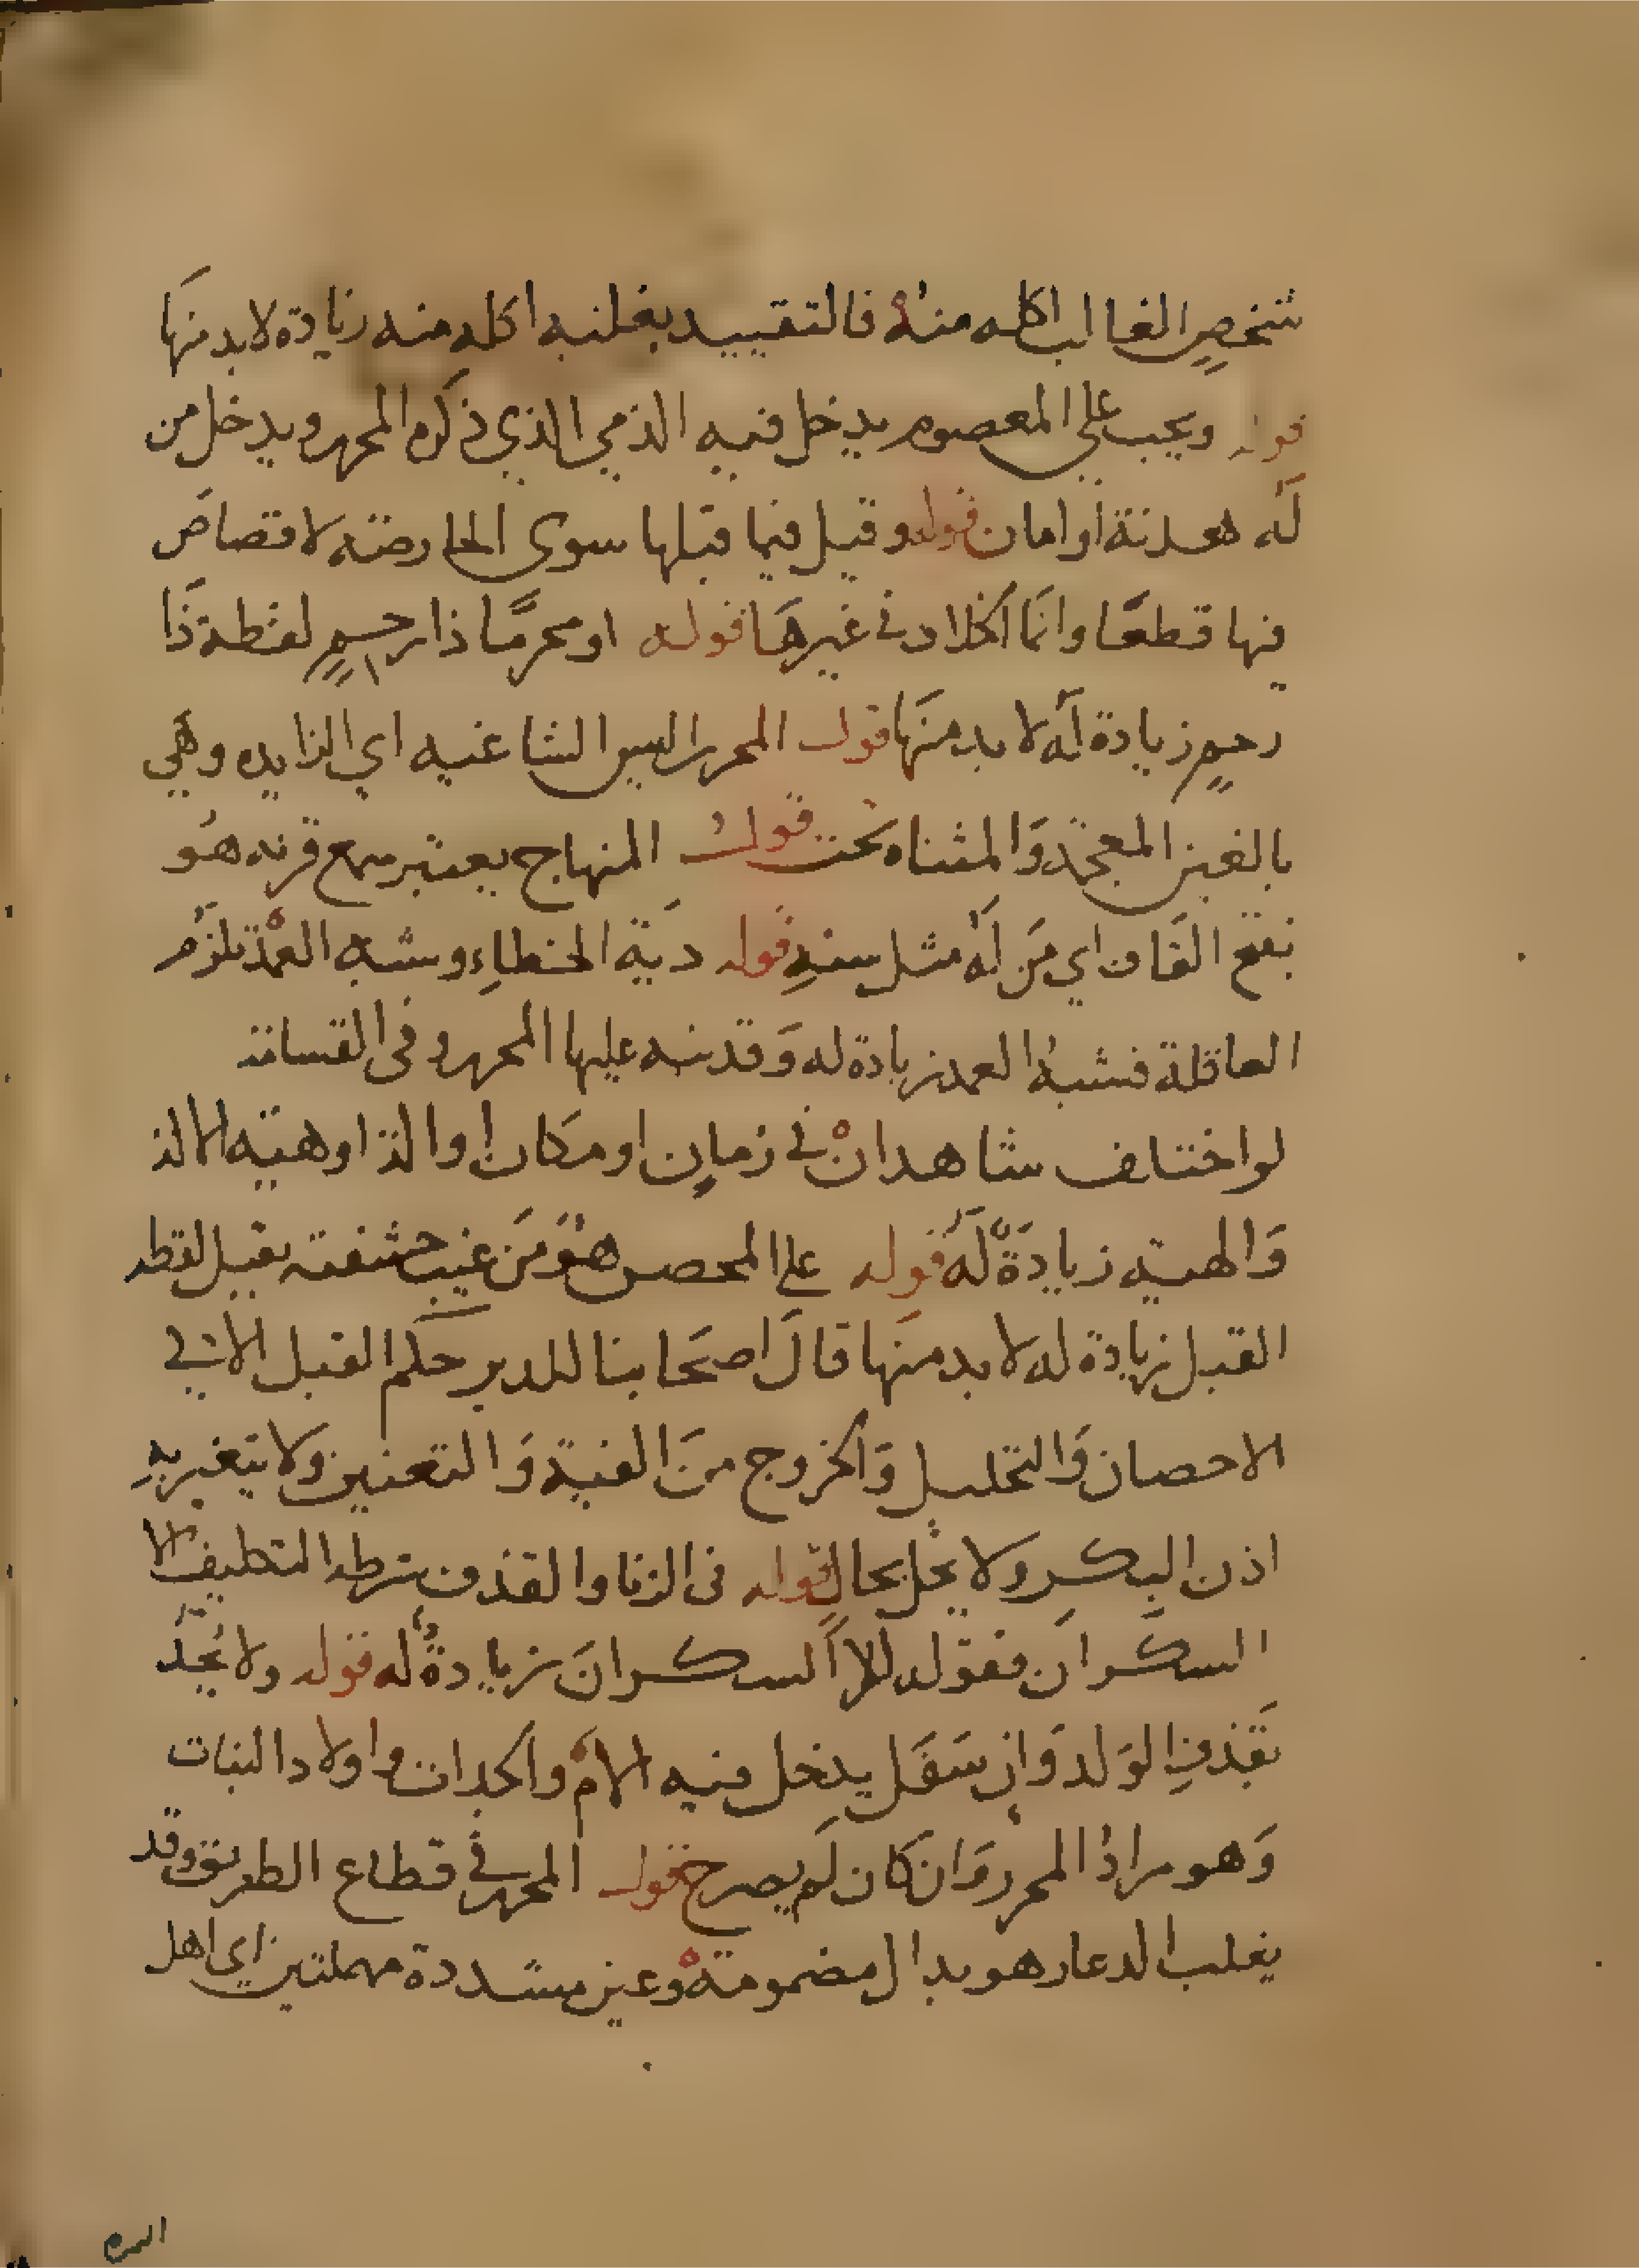 شخصٍ الغالب اكله منهُ فالتقييد بغلبه اكله منه زيادة لابد منهَا
قوله ويجب على المعصوم يدخل فيه الذمي الذي ذكره المحرر ويدخل من
لَه هدنة او امان قوله وقيل فيما قبلها سوى الحارصته لاقصاصَ
فيها قطعًا وانمَا الخلاف في غيرهَا قوله او محرمًا ذا رحِمٍ لفظة ذَا
رحِمٍ زيادة لَه لابد منهَا قول المحرر السن الشاغيه اي الزايده وهَي
بالغين المعجمَة وَالمثناه تحت قول المنهاج يعتبر سمع قرنه هوُ
بفتح القَاف اي مَن لَه مثل سنهِ قوله ديَة الخطاءِ وشبه العمْد تلزَم
العاقلة فشبهُ العمد زيادة له وَقد نبه عليها المحرر وفي القسامة
لو اختلف شاهدانْ في زمانٍ او مكان او الة او هيَه الالة
وَالهيه زيادَةٌ لَه قوله على المحصن هوَُ مَن غيب حشفته بقبل لفظه
القبل زيادة له لابد منهَا قالَ اصحَابنا للدبر حكم القبل الا في
الاحصان وَالتحليل وَالخروج منَ الفية وَالتعنين ولايتغير بهِ
اذن البِكر ولايحل بحال قوله في الزنا والقذف شرطه التكليف الا
السكرانَ فقوله الا السكرانَ زيادةٌ له قوله ولايُحدُّ
بقَذفِ الوَلد وَان سَفَل يدخل فيه الامُ والجدات واولاد البنات
وَهو مرادُ المحرر وَان كان لَم يصرح قول المحرر في قطاع الطريق وقد
يغلب الدعار هو بدال مضمومةْ وعين مشددة مهملتين اي اهل